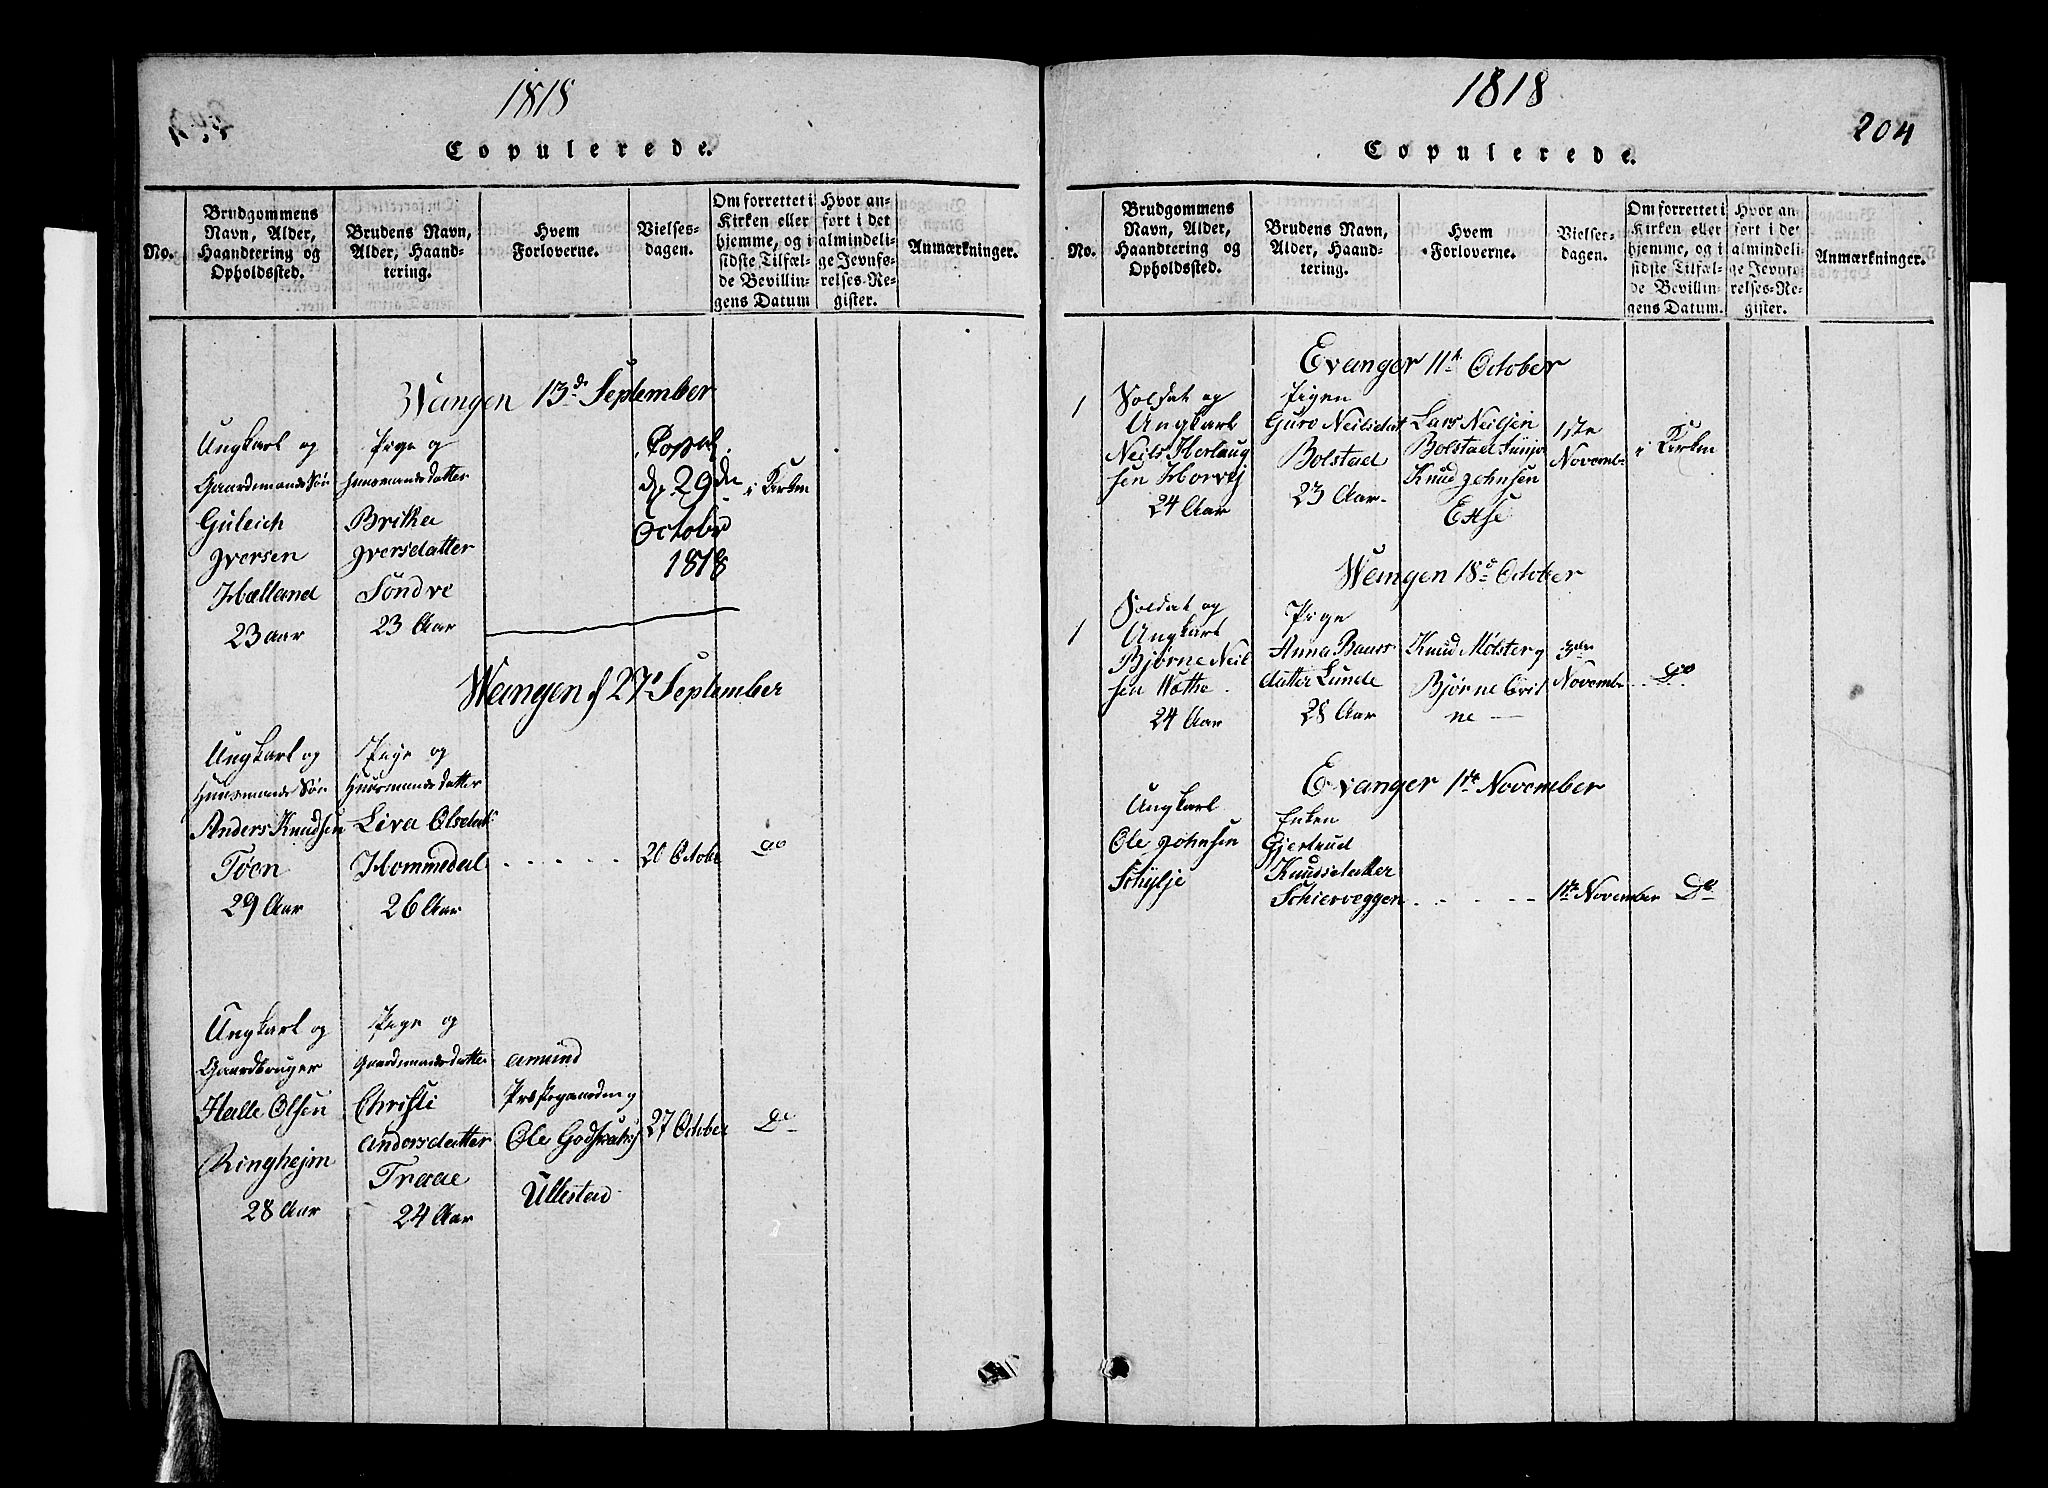 1818
Copulerede.
No.
Brudgommens
Navn, Alder,
Haandtering og
Opholdssted.
Brudens Navn,
Alder, Haand-
tering.
Hvem
Forloverne.
Vielses-
dagen.
Om forrettet i
Kirken eller
hjemme, og i
sidste Tilfæl-
de Bevillin-
gens Datum
Hvor an-
ført i det
almindeli-
ge Jevnfø-
relses-Re-
gister.
Anmærkninger.
Wangen 13de September
Ungkarl og
Gaardmands Søn
Guleich
Iversen
Hælland
23 aar
Pige og
Huusmands datter
Britha
Iversdatter
Søndve
23 Aar
Copul.
d. 29de
Octobr
1818
i Kirken
Wangen 27 September
Ungkarl og
Huusmands Søn
Anders Knudsen
Tøen
29 Aar
Pige og
Huusmands datter
Liva Olsdatt
Hommedal
26 Aar
20 Octobr
do
Ungkarl og
Gaardbruger
Halle Olsen
Ringhejm
28 Aar
Pige og
Gaardmands datter
Christi
Andersdatter
Træde
24 Aar
Amund
Præstegaarden og
Ole
Ullestad
27 October
Do
1818
204
Copulerede.
No.
Brudgommens
Navn, Alder,
Haandtering og
Opholdssted.
Brudens Navn,
Alder, Haand-
tering.
Hvem
Forloverne.
Vielses-
dagen.
Om forrettet i
Kirken eller
hjemme, og i
sidste Tilfæl-
de Bevillin-
gens Datum.
Hvor an-
ført i det
almindeli-
ge Jevnfø-
relses-Re-
gister.
Anmærkninger.
Evanger 11te October
1
Soldat og
Ungkarl
Neils Herlaug
sen Horvej
24 Aar
Pigen
Guro Neilsdat
Bolstad
23 Aar
Lars Neilsen
Bolstad
Knud Johnsen
Exse
1ste
Novembr
i Kirken
Wangen 18de October
1
Soldat og
Ungkarl
Bjørne Neil
sen Wæthe
24 Aar
Pige
Anna Baars
datter Lunde
28 Aar
Knud Mølster og
Bjørne Gril
ne
3die
Novembr
Do
Evanger 1ste November
Ungkarl
Ole Johnsen
Schylje
Enken
Gjertrud
Knudsdatter
Schierveggen
1ste November
Do